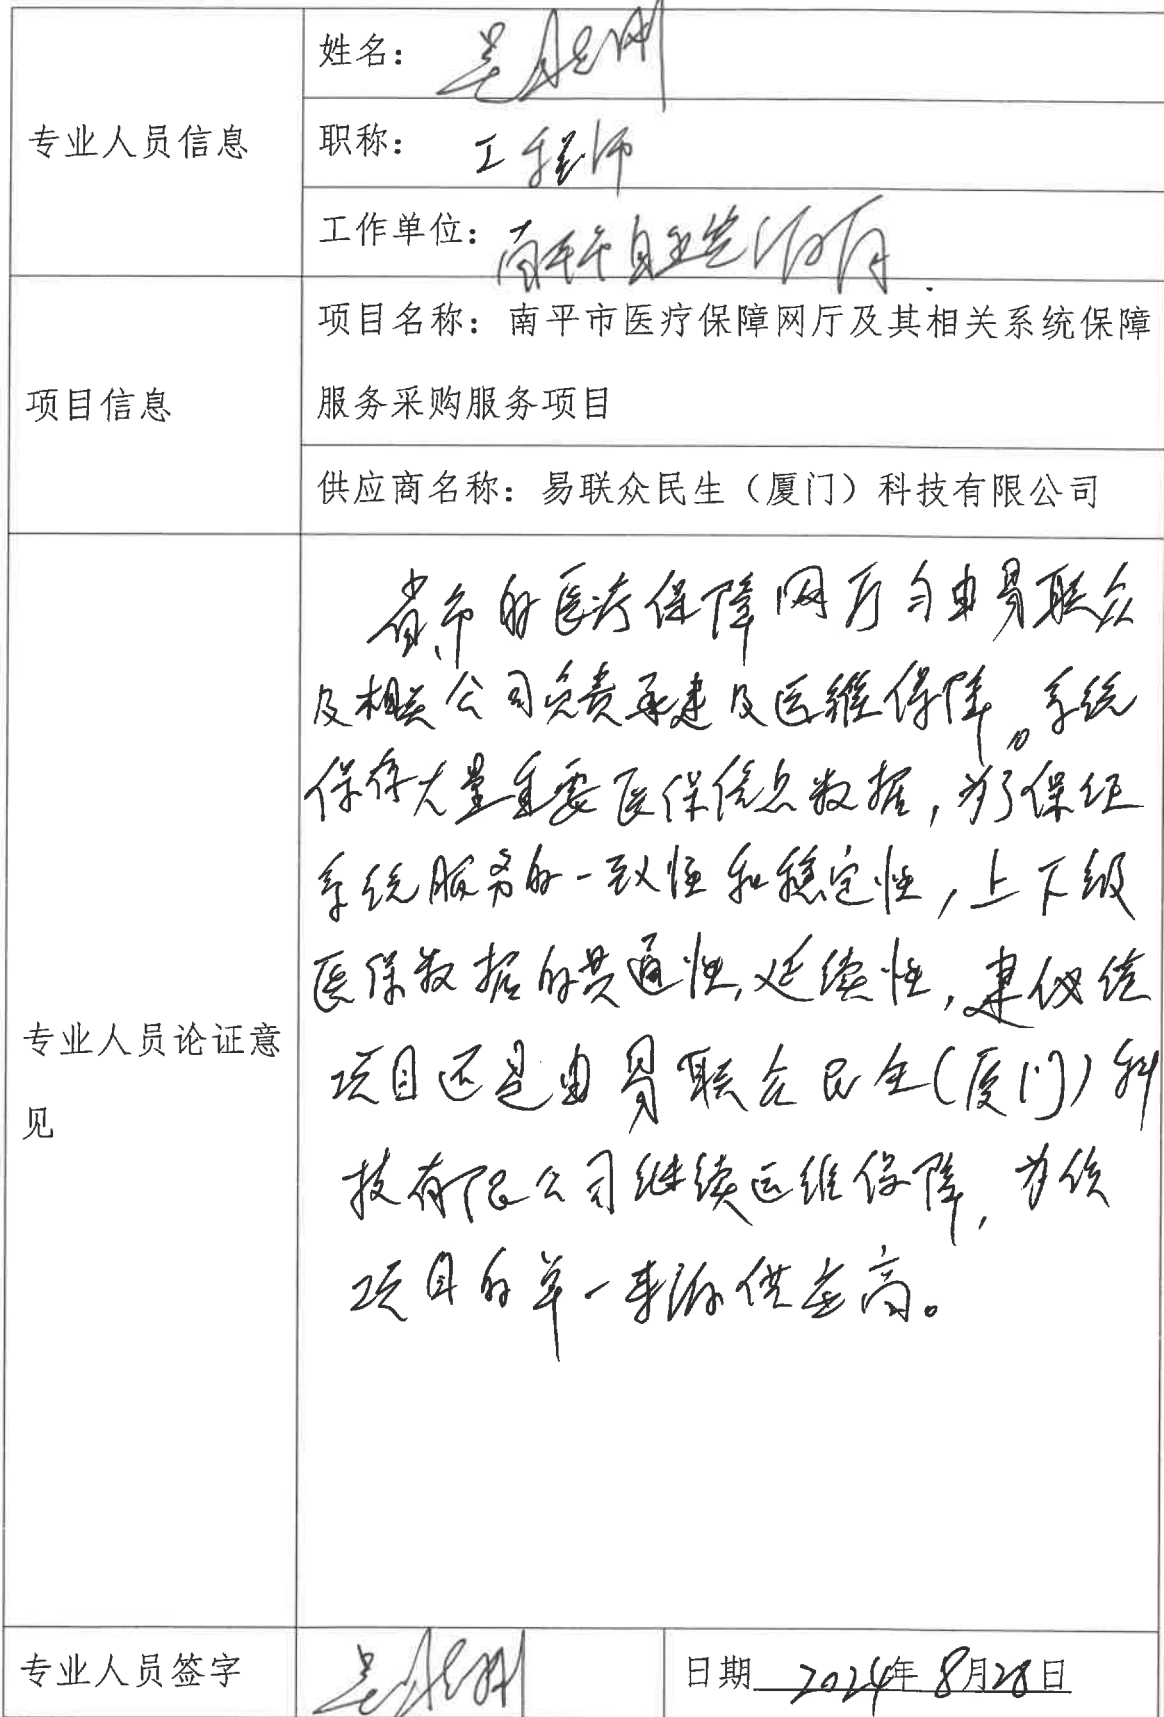 专业人员信息
姓名：
职称： 工程师
工作单位：南平市
项目信息
项目名称：南平市医疗保障网厅及其相关系统保障
服务采购服务项目
供应商名称：易联众民生（厦门）科技有限公司
专业人员论证意
见
省、市的医疗保障网厅均由易联众
及相关公司负责承建及运维保障。系统
保存大量重要医保信息数据，为了保证
系统服务的一致性和稳定性，上下级
医保数据的共通性，延续性，建议该
项目还是由易联众民生（厦门）科
技有限公司继续运维保障，为该
项目的单一来源供应商。
专业人员签字
日期 2024年8月28日